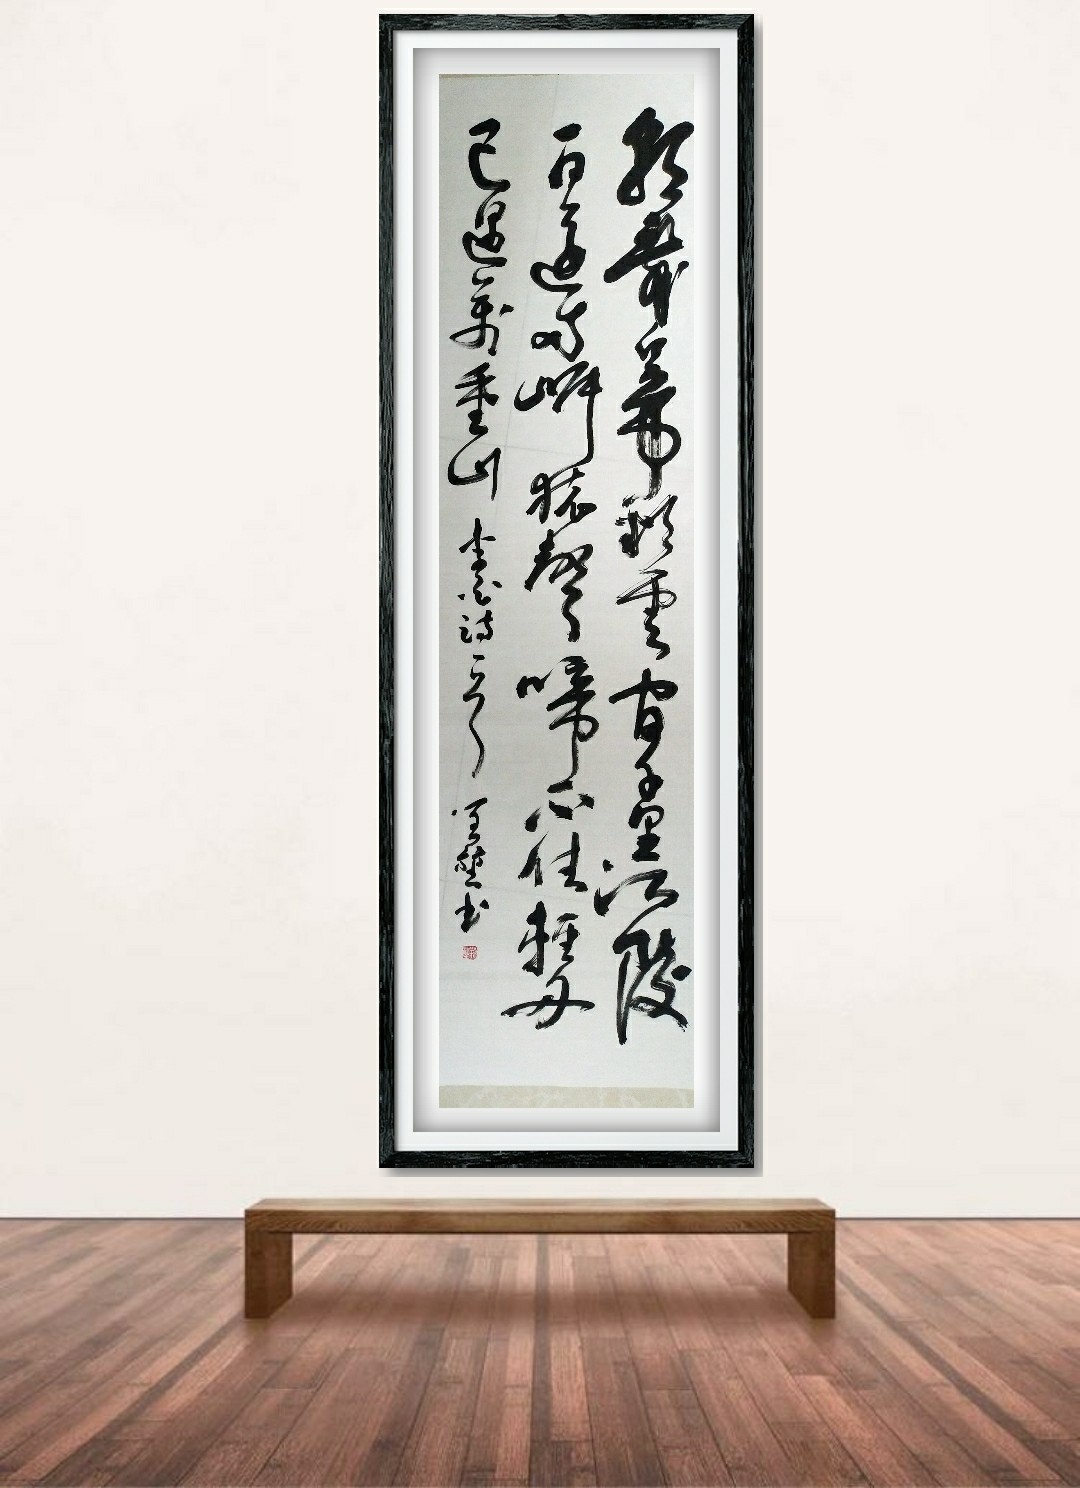 朝辭白帝彩雲間千里江陵
一日還兩岸猿聲啼不住輕舟
已過萬重山 李白詩一首 楚書